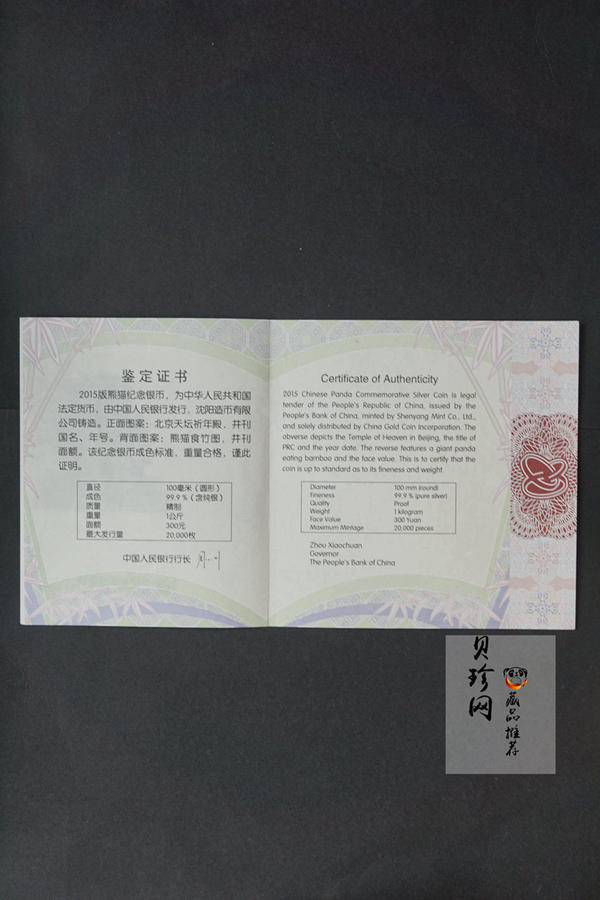 鉴定证书
2015版熊猫纪念银币，为中华人民共和国
法定货币，由中国人民银行发行，沈阳造币有限
公司铸造。正面图案：北京天坛祈年殿，并刊
国名、年号。背面图案：熊猫食竹图，并刊
面额。该纪念银币成色标准，重量合格，谨此
证明。
直径 100毫米（圆形）
成色 99.9％（含纯银）
质量 精制
重量 1公斤
面额 300元
最大发行量 20,000枚
中国人民银行行长
Certificate of Authenticity
2015 Chinese Panda Commemorative Silver Coin is legal
tender of the People's Republic of China, issued by the
People's Bank of China, minted by Shenyang Mint Co., Ltd.,
and solely distributed by China Gold Coin Incorporation. The
obverse depicts the Temple of Heaven in Beijing, the title of
PRC and the year date. The reverse features a giant panda
eating bamboo and the face value. This is to certify that the
coin is up to standard as to its fineness and weight.
Diameter 100 mm (round)
Fineness 99.9 % (pure silver)
Quality Proof
Weight 1 kilogram
Face Value 300 Yuan
Maximum Mintage 20,000 pieces
Zhou Xiaochuan
Governor
The People's Bank of China
贝珍网
藏品推荐